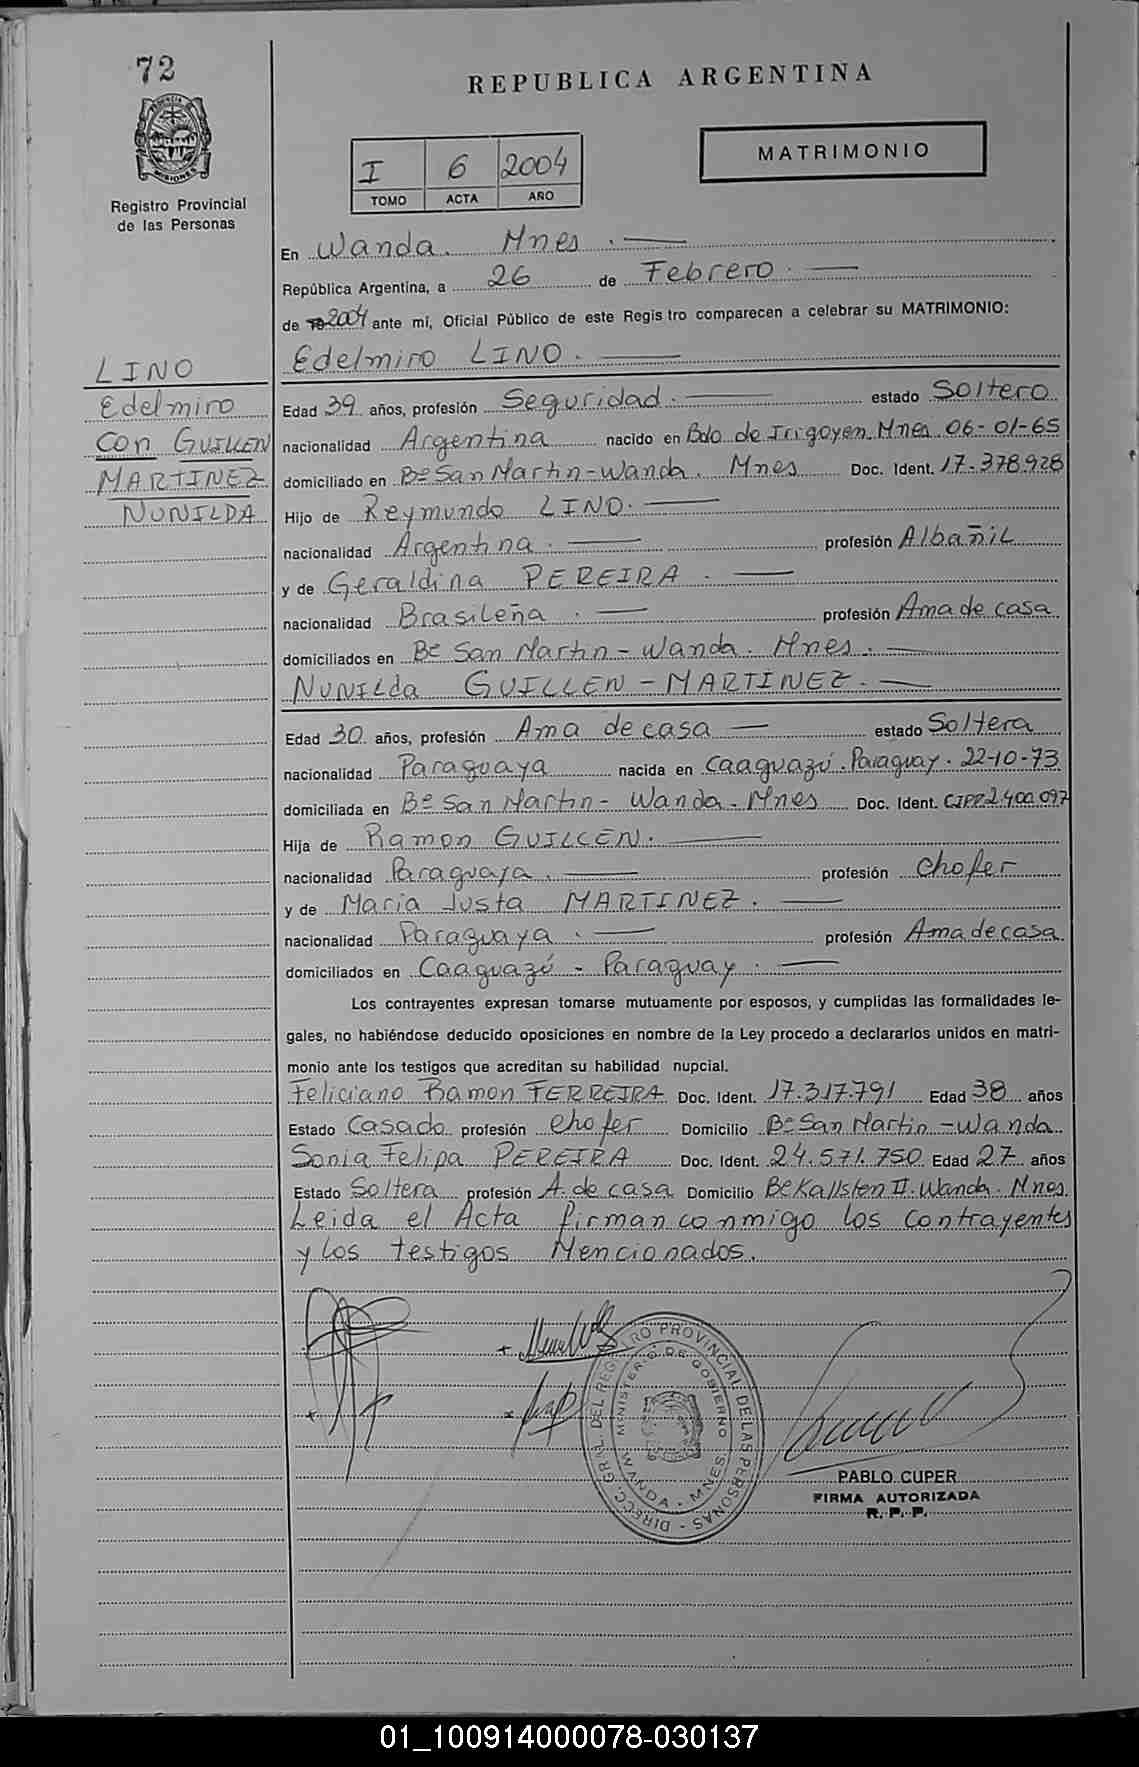 72
REPUBLICA ARGENTINA
PROVINCIA DE MISIONES
Registro Provincial
de las Personas
I 6 2004
TOMO ACTA AÑO
MATRIMONIO
En Wanda. Mnes.
República Argentina, a 26 de Febrero.
de 2004 ante mí, Oficial Público de este Registro comparecen a celebrar su MATRIMONIO:
LINO
Edelmiro
con GUILLEN
MARTINEZ
NUNILDA
Edelmiro LINO.
Edad 39 años, profesión Seguridad. estado Soltero
nacionalidad Argentina nacido en Bdo de Irigoyen Mnes 06-01-65
domiciliado en Bº San Martin-Wanda. Mnes Doc. Ident. 17.378.928
Hijo de Reymundo LINO.
nacionalidad Argentina. profesión Albañil
y de Geraldina PEREIRA.
nacionalidad Brasileña. profesión Ama de casa
domiciliados en Bº San Martin-Wanda. Mnes.
NUNILda GUILLEN-MARTINEZ.
Edad 30 años, profesión Ama de casa estado Soltera
nacionalidad Paraguaya nacida en Caaguazú. Paraguay. 22-10-73
domiciliada en Bº San Martin- Wanda. Mnes Doc. Ident. CIPP2.400.097
Hija de Ramon GUILLEN.
nacionalidad Paraguaya. profesión chofer
y de Maria Justa MARTINEZ.
nacionalidad Paraguaya. profesión Ama de casa
domiciliados en Caaguazú - Paraguay.
Los contrayentes expresan tomarse mutuamente por esposos, y cumplidas las formalidades le-
gales, no habiéndose deducido oposiciones en nombre de la Ley procedo a declararlos unidos en matri-
monio ante los testigos que acreditan su habilidad nupcial.
Feliciano Ramon FERREIRA Doc. Ident. 17.317.791 Edad 38 años
Estado Casado profesión chofer Domicilio Bº San Martin-Wanda
Sonia Felipa PEREIRA Doc. Ident. 24.571.750 Edad 27 años
Estado Soltera profesión A. de casa Domicilio Bº Kallsten II. Wanda. Mnes
Leida el Acta firman conmigo los contrayentes
y los testigos Mencionados.
DIRECC. GRAL. DEL REGISTRO PROVINCIAL DE LAS PERSONAS
MINISTERIO DE GOBIERNO
WANDA - MNES.
PABLO CUPER
FIRMA AUTORIZADA
R. P. P.
01_100914000078-030137